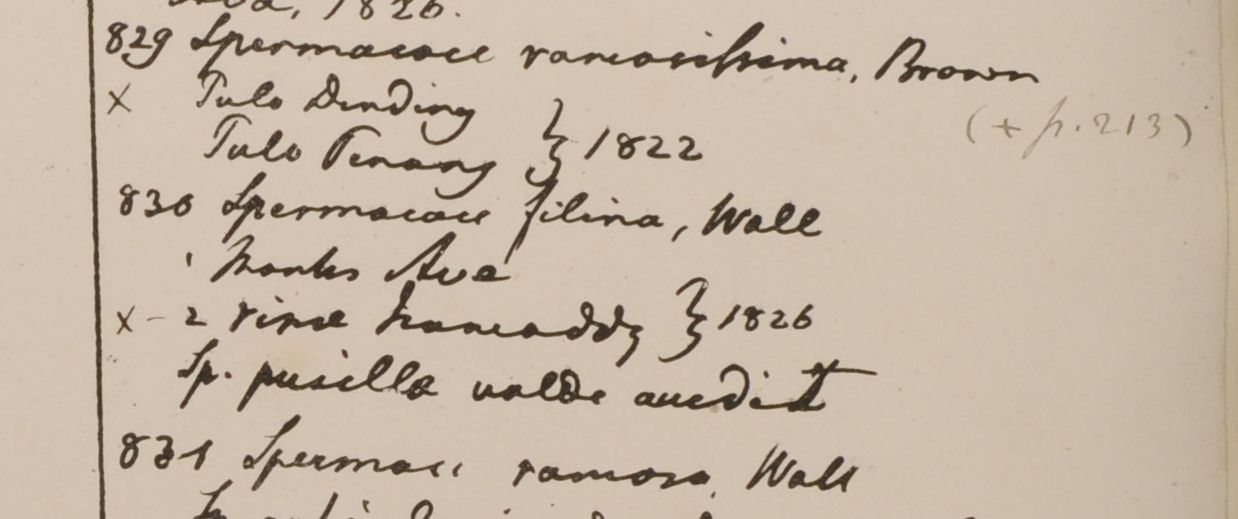 Ava, 1826.
829 Spermacoce ramosissima, Brown
× Pulo Dinding
Pulo Penang } 1822
(+ p. 213)
830 Spermacoce filina, Wall
Montes Ava
× - 2 ripae } 1826
Sp. pusilla valde
831 Spermac ramosa, Wall